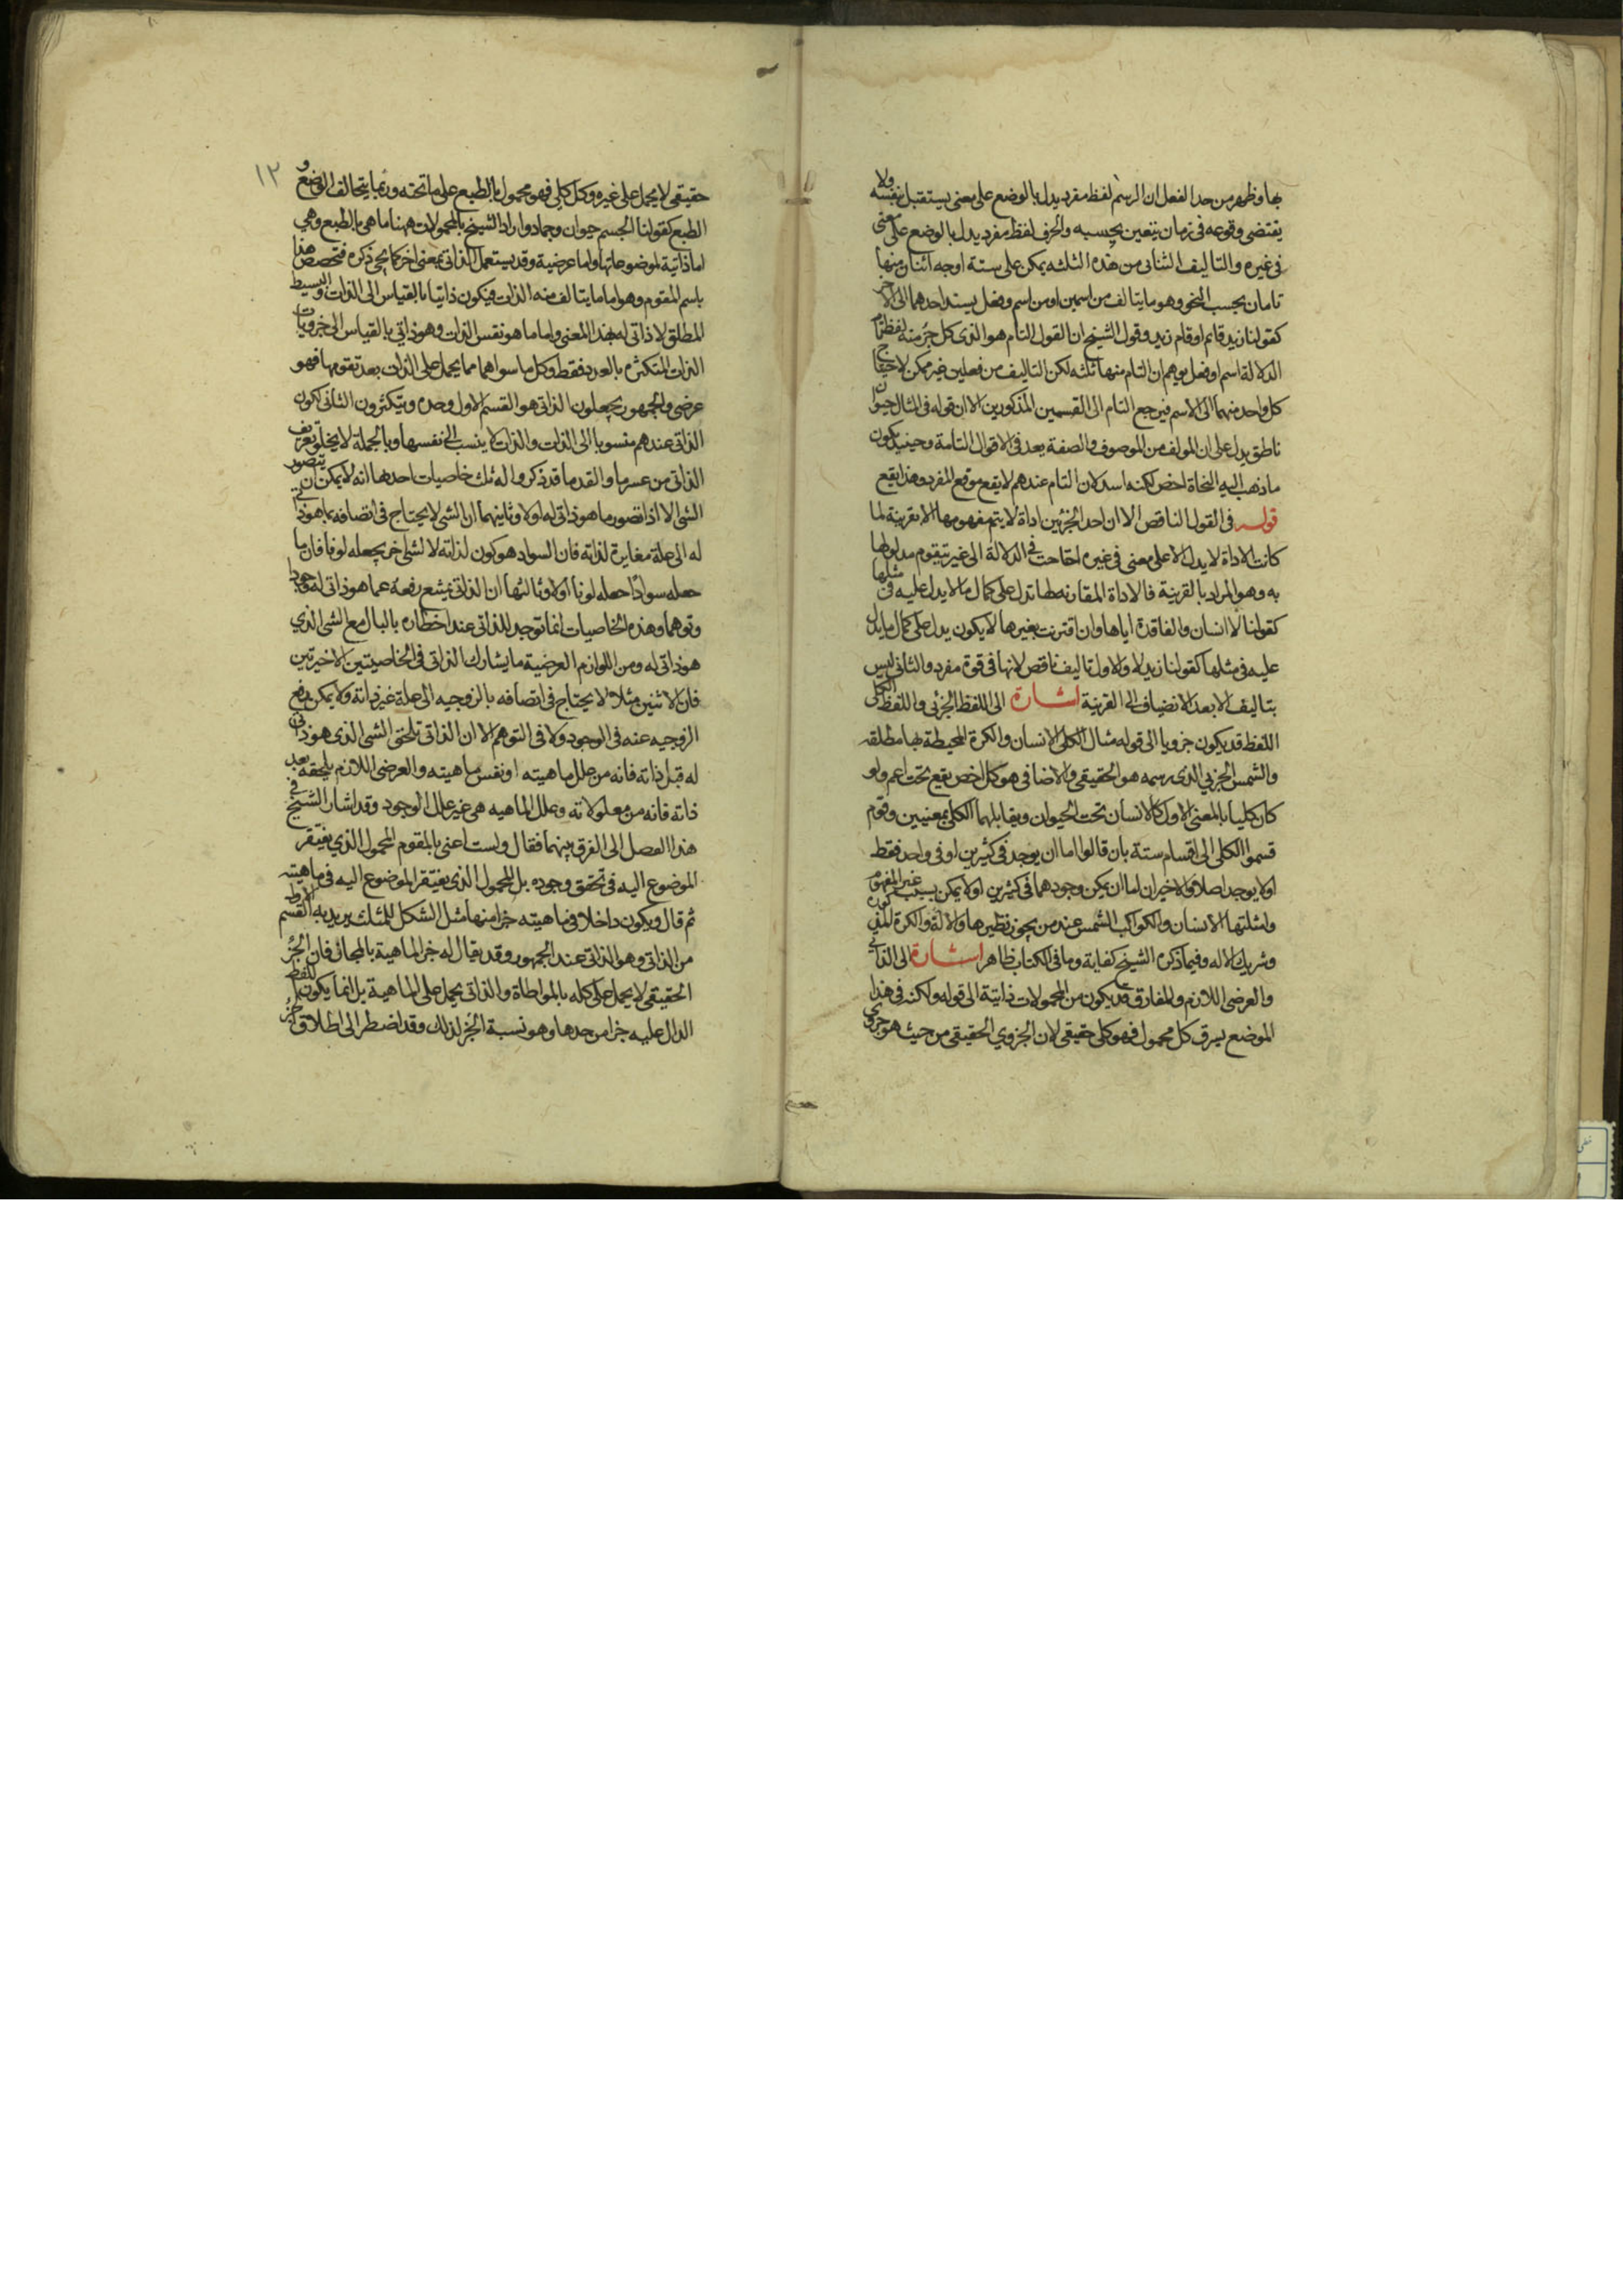 بها وظهر من حد الفعل ان الرسم لفظ مفرد يدل بالوضع على معنى يستقبل بنفسه ولا
يقتضى وقوعه فى زمان يتعين بحسبه والحرف لفظ مفرد يدل بالوضع على معنى
فى غيره والتاليف الثنائى من هذه الثلثه يمكن على ستة اوجه اثنان منها
تامان بحسب النحو وهو ما يتالف من اسمين او من اسم وفعل يسند احدهما الى الاخر
كقولنا زيد قائم او قام زيد وقول الشيخ ان القول التام هو الذى كل جزء منه لفظ تام
الدلالة اسم او فعل يوهم ان التام منها ثلثه لكن التاليف من فعلين غير ممكن لاحتياج
كل واحد منهما الى الاسم فيرجع التام الى القسمين المذكورين الا ان قوله فى المثال حيوان
ناطق يدل على ان المولف من الموصوف والصفة يعد فى الاقوال التامة وحينئذ يكون
ما ذهب اليه النحاة اخص لكنه اسد لان التام عندهم لا يقع موقع المفرد وهذا يقع
قوله فى القول الناقص الا ان احد الجزئين اداة لا يتم مفهومها الا بقرينة لما
كانت الاداة لا يدل الا على معنى فى غيره احتاجت فى الدلالة الى غير يتقوم مدلولها
به وهو المراد بالقرينة فالاداة المقارنه لها تدل على كمال ما لا يدل عليه فى مثلها
كقولنا لا انسان والفاقدة اياها وان اقترنت بغيرها لا يكون يدل على كمال ما يدل
عليه فى مثلها كقولنا زيد لا ولا والاول تاليف ناقص لانها فى قوة مفرد والثانى ليس
بتاليف الا بعد الانضياف الى القرينة اشارة الى اللفظ الجزئى واللفظ الكلى
اللفظ قد يكون جزويا الى قوله مثال الكلى الانسان والكرة المحيطة بها مطلقه
والشمس الجزيى الذى رسمه هو الحقيقى والاضافى هو كل اخص يقع تحت اعم ولو
كان كليا بالمعنى الاول كالانسان تحت الحيوان ويقابلهما الكلى بمعنيين وقوم
قسموا الكلى الى اقسام ستة بان قالوا اما ان يوجد فى كثيرين او فى واحد فقط
اولا يوجد اصلا والاخيران اما ان يمكن وجودهما فى كثيرين او لا يمكن بسبب غير المفهوم
وامثلتها الانسان والكواكب الشمس عند من يجوز نظيرها والالة والكرة
وشريك الاله وفيما ذكره الشيخ كفاية وما فى الكتاب ظاهر اشارة الى الذاتى
والعرضى اللازم والمفارق قد يكون من المحمولات ذاتية الى قوله ولكنه فى هذا
الموضع يسرق كل محمول فهو كلى حقيقى لان الجزوي الحقيقى من حيث هو جزوى
١٢
حقيقى لا يحمل على غيره وكل كلى فهو محمول بالطبع على ما تحته وربما يتخالف الوضع و
الطبع كقولنا الجسم حيوان وجماد واراد الشيخ بالمحمولات ههنا ما هى بالطبع وهي
اما ذاتية لموضوعاتها واما عرضية وقد يستعمل الذاتى بمعنى اخر كما يجى ذكره فتخصص هذا
باسم المقوم وهو اما ما يتالف منه الذات فيكون ذاتيا بالقياس الى الذات والبسيط
المطلق لا ذاتى له بهذا المعنى واما ما هو نفس الذات وهو ذاتي بالقياس الى جزويات
الذات المتكثره بالعدد فقط وكل ما سواهما مما يحمل على الذات بعد تقومها فهو
عرضى والجمهور يجعلون الذاتى هو القسم الاول وحده ويتكثرون الثانى لكون
الذاتى عندهم منسوبا الى الذات والذات لا ينسب الى نفسها وبالجملة لا يخلو تعريف
الذاتى من عسر ما والقدما قد ذكروا له ثلث خاصيات احدها انه لا يمكن ان يتصور
الشى الا اذا تصور ما هو ذاتى له اولا وثانيهما ان الشى لا يحتاج فى اتصافه بما هو ذاتى
له الى علة مغايرة لذاته فان السواد هو كون لذاته لا لشى اخر يجعله لونا فان ما
جعله سوادا جعله لونا اولا وثالثها ان الذاتى يمتنع رفعه عما هو ذاتى له وجودا
وتوهما وهذه الخاصيات انما توجد للذاتى عند اخطاره بالبال مع الشى الذي
هو ذاتى له ومن اللوازم العرضية ما يشارك الذاتى فى الخاصيتين الاخيرتين
فان الاثنين مثلا لا يحتاج فى اتصافه بالزوجيه الى علة غير ذاته ولا يمكن رفع
الزوجيه عنه فى الوجود ولا فى التوهم الا ان الذاتى تلحق الشى الذى هو ذاتى
له قبل ذاته فانه من علل ماهيته او نفس ماهيته والعرضى اللازم يلحقه بعد
ذاته فانه من معلولاته وعلل الماهيه هى غير علل الوجود وقد اشار الشيخ فى
هذا الفصل الى الفرق بينهما فقال ولست اعنى بالمقوم المحمول الذي يفتقر
الموضوع اليه فى تحقق وجوده بل المحمول الذى يفتقر الموضوع اليه فى ماهيته
ثم قال ويكون داخلا فى ماهيته جزا منها مثل الشكل للمثلث يريد به القسم الاول
من الذاتى وهو الذاتى عند الجمهور وقد يقال له جزء الماهية بالمجاز فان الجزء
الحقيقى لا يحمل على كله بالمواطاة والذاتى يحمل على الماهية بل انما يكون اللفظ
الدال عليه جزا من حدها وهو نسبة الجز لذلك وقد اضطر الى اطلاق جزء